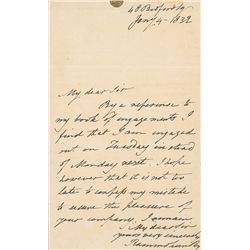 48 Bedford Sq
Jany 4 - 1832
My dear Sir
By a reference to
my book of engagements I
find that I am engaged
out on Tuesday instead
of Monday next. I hope
however that it is not too
late to confess my mistake
to ensure the pleasure of
your company. I remain
My dear Sir
yours very sincerely